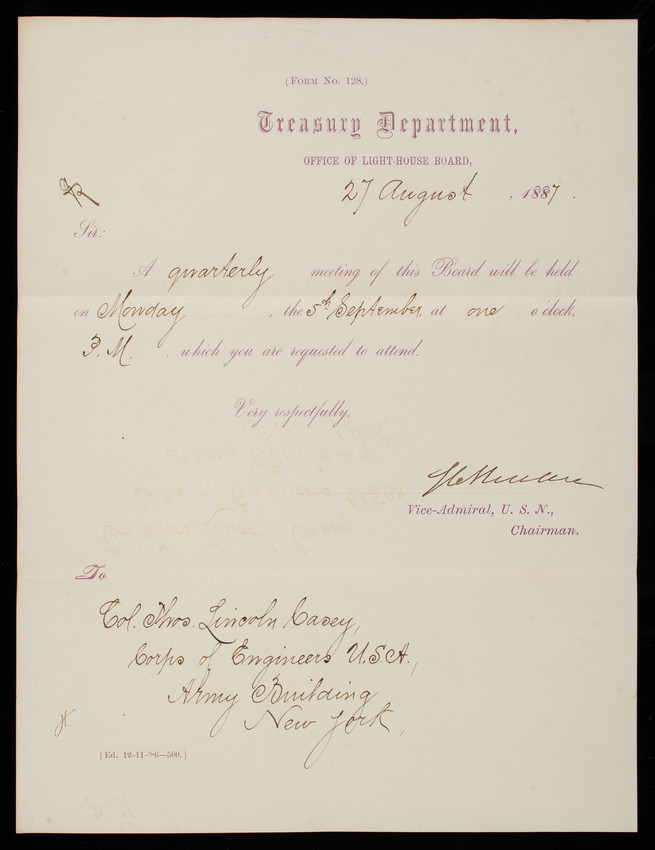 (Form No. 128.)
Treasury Department,
OFFICE OF LIGHT-HOUSE BOARD,
27 August , 1887 .
Sir:
A quarterly meeting of this Board will be held
on Monday , the 5th September, at one o'clock,
P. M. , which you are requested to attend.
Very respectfully,
Vice-Admiral, U. S. N.,
Chairman.
To
Col. Thos. Lincoln Casey,
Corps of Engineers U.S.A.,
Army Building
New York,
(Ed. 12-11-'86—500.)